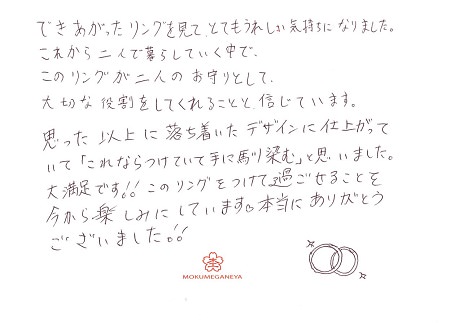 できあがったリングを見て、とてもうれしい気持ちになりました。
これから二人で暮らしていく中で、
このリングが二人のお守りとして、
大切な役割をしてくれることと信じています。
思った以上に落ち着いたデザインに仕上がって
いて「これならつけていて手に馴染む」と思いました。
大満足です!! このリングをつけて過ごせることを
今から楽しみにしています。本当にありがとう
ございました!!
MOKUMEGANEYA